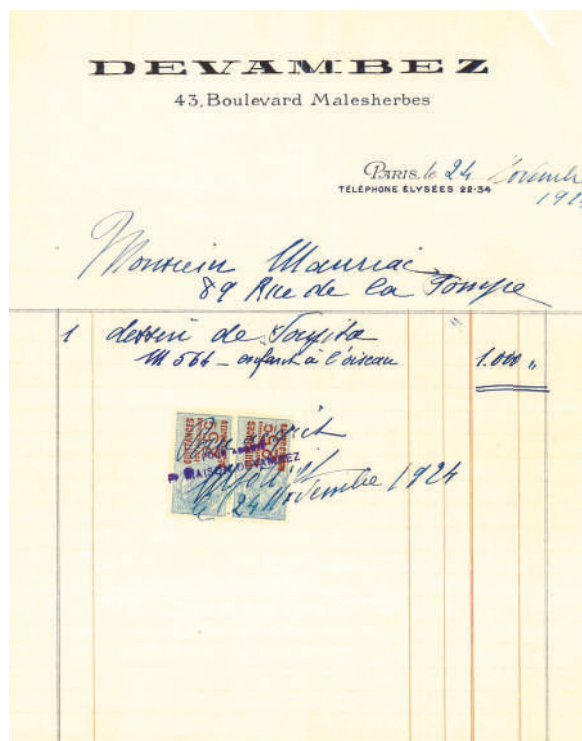 DEVAMBEZ
43, Boulevard Malesherbes
PARIS, le 24 Novembre
TÉLÉPHONE ÉLYSÉES 22-34
192
Monsieur Mauriac
89 Rue de la Pompe
1 dessin de Foujita
M 564 - enfant à l'oiseau 1.000 "
Pour acquit
QUITTANCES 25c QUITTANCES 25c
POUR ACQUIT
Pr MAISON DEVAMBEZ
le 24 Novembre 1924